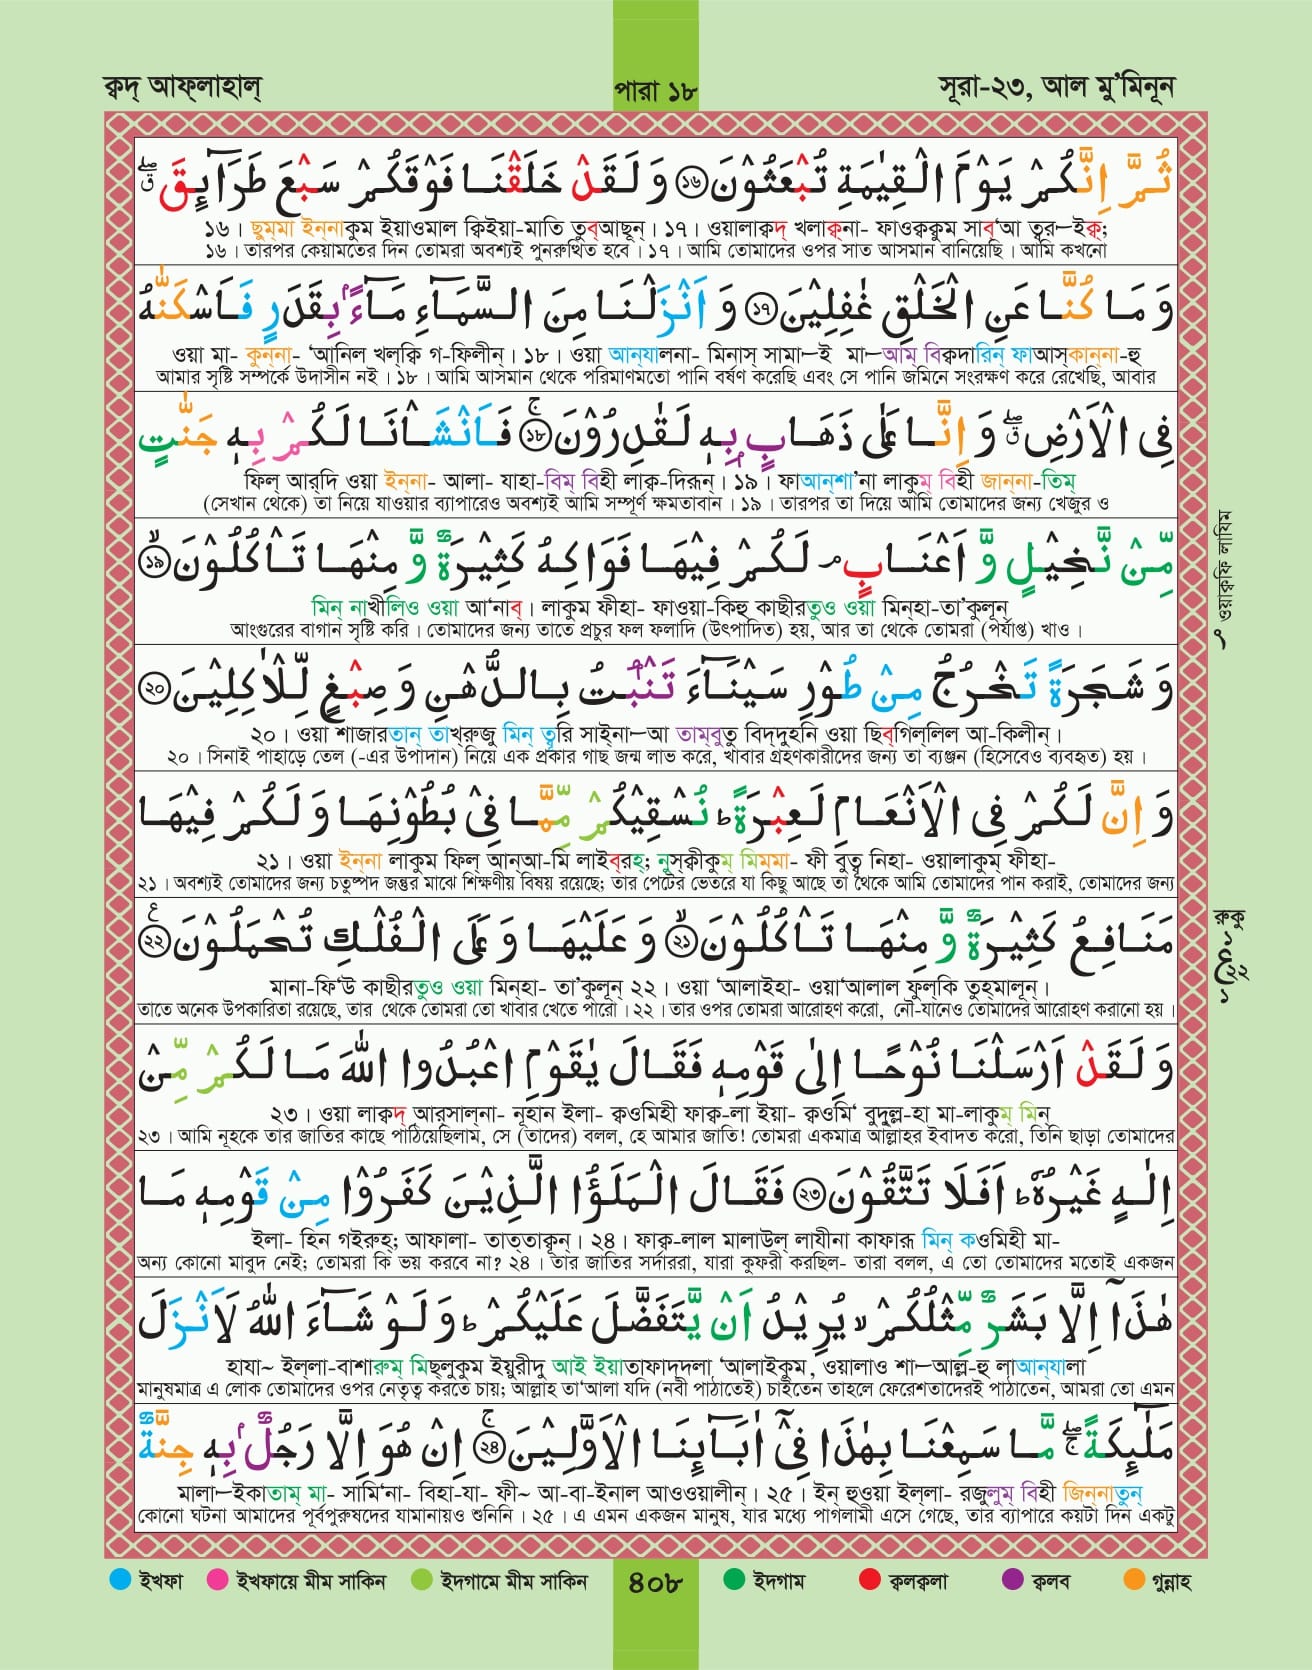 ক্বদ্ আফ্লাহাল্
পারা ১৮
সূরা-২৩, আল মু’মিনূন
ثُمَّ اِنَّكُمْ يَوْمَ الْقِيٰمَةِ تُبْعَثُوْنَ ۝١٦ وَ لَقَدْ خَلَقْنَا فَوْقَكُمْ سَبْعَ طَرَآئِقَ ۖق
১৬। ছুম্মা ইন্নাকুম ইয়াওমাল ক্বিইয়া-মাতি তুব্আছূন্। ১৭। ওয়ালাক্বদ্ খলাক্ব্না- ফাওক্বকুম সাব্‘আ ত্বর—ইক্ব্;
১৬। তারপর কেয়ামতের দিন তোমরা অবশ্যই পুনরুত্থিত হবে। ১৭। আমি তোমাদের ওপর সাত আসমান বানিয়েছি। আমি কখনো
وَ مَا كُنَّا عَنِ الْخَلْقِ غٰفِلِيْنَ ۝١٧ وَ اَنْزَلْنَا مِنَ السَّمَآءِ مَآءًۢ بِقَدَرٍ فَاَسْكَنّٰهُ
ওয়া মা- কুন্না- ‘আনিল খল্ক্বি গ-ফিলীন্। ১৮। ওয়া আন্যালনা- মিনাস্ সামা—ই মা—আম্ বিক্বদারিন্ ফাআস্কান্না-হু
আমার সৃষ্টি সম্পর্কে উদাসীন নই। ১৮। আমি আসমান থেকে পরিমাণমতো পানি বর্ষণ করেছি এবং সে পানি জমিনে সংরক্ষণ করে রেখেছি, আবার
فِى الْاَرْضِ ۖق وَ اِنَّا عَلٰى ذَهَابٍۭ بِهٖ لَقٰدِرُوْنَ ۚ۝١٨ فَاَنْشَاْنَا لَكُمْ بِهٖ جَنّٰتٍ
ফিল্ আর্দি ওয়া ইন্না- আলা- যাহা-বিম্ বিহী লাক্ব-দিরূন্। ১৯। ফাআন্শা’না লাকুম্ বিহী জান্না-তিম্
(সেখান থেকে) তা নিয়ে যাওয়ার ব্যাপারেও অবশ্যই আমি সম্পূর্ণ ক্ষমতাবান। ১৯। তারপর তা দিয়ে আমি তোমাদের জন্য খেজুর ও
مِّنْ نَّخِيْلٍ وَّ اَعْنَابٍ ۘ لَكُمْ فِيْهَا فَوَاكِهُ كَثِيْرَةٌ وَّ مِنْهَا تَاْكُلُوْنَ ۙ۝١٩
মিন্ নাখীলিও ওয়া আ‘নাব্। লাকুম ফীহা- ফাওয়া-কিহু কাছীরতুও ওয়া মিন্হা-তা’কুলূন্
আংগুরের বাগান সৃষ্টি করি। তোমাদের জন্য তাতে প্রচুর ফল ফলাদি (উৎপাদিত) হয়, আর তা থেকে তোমরা (পর্যাপ্ত) খাও।
ওয়াক্বফি লাযিম
وَ شَجَرَةً تَخْرُجُ مِنْ طُوْرِ سَيْنَآءَ تَنْۢبُتُ بِالدُّهْنِ وَ صِبْغٍ لِّلْاٰكِلِيْنَ ۝٢٠
২০। ওয়া শাজারতান্ তাখ্রুজু মিন্ ত্বূরি সাইনা—আ তাম্বুতু বিদ্দুহনি ওয়া ছিব্গিল্লিল আ-কিলীন্।
২০। সিনাই পাহাড়ে তেল (-এর উপাদান) নিয়ে এক প্রকার গাছ জন্ম লাভ করে, খাবার গ্রহণকারীদের জন্য তা ব্যঞ্জন (হিসেবেও ব্যবহৃত) হয়।
وَ اِنَّ لَكُمْ فِى الْاَنْعَامِ لَعِبْرَةً ؕ نُسْقِيْكُمْ مِّمَّا فِىْ بُطُوْنِهَا وَ لَكُمْ فِيْهَا
২১। ওয়া ইন্না লাকুম ফিল্ আন্আ-মি লাইব্রহ্; নুস্ক্বীকুম্ মিমমা- ফী বুত্বূ নিহা- ওয়ালাকুম্ ফীহা-
২১। অবশ্যই তোমাদের জন্য চতুষ্পদ জন্তুর মাঝে শিক্ষণীয় বিষয় রয়েছে; তার পেটের ভেতরে যা কিছু আছে তা থেকে আমি তোমাদের পান করাই, তোমাদের জন্য
مَنَافِعُ كَثِيْرَةٌ وَّ مِنْهَا تَاْكُلُوْنَ ۙ۝٢١ وَ عَلَيْهَا وَ عَلَى الْفُلْكِ تُحْمَلُوْنَ ۝٢٢ ع
মানা-ফি‘উ কাছীরতুও ওয়া মিন্হা- তা’কুলূন্ ২২। ওয়া ‘আলাইহা- ওয়া‘আলাল ফুল্কি তুহ্মালূন্।
তাতে অনেক উপকারিতা রয়েছে, তার থেকে তোমরা তো খাবার খেতে পারো। ২২। তার ওপর তোমরা আরোহণ করো, নৌ-যানেও তোমাদের আরোহণ করানো হয়।
রুকু
وَ لَقَدْ اَرْسَلْنَا نُوْحًا اِلٰى قَوْمِهٖ فَقَالَ يٰقَوْمِ اعْبُدُوا اللّٰهَ مَا لَكُمْ مِّنْ
২৩। ওয়া লাক্বদ্ আর্সাল্না- নূহান ইলা- ক্বওমিহী ফাক্ব-লা ইয়া- ক্বওমি‘ বুদুল্ল-হা মা-লাকুম্ মিন্
২৩। আমি নূহকে তার জাতির কাছে পাঠিয়েছিলাম, সে (তাদের) বলল, হে আমার জাতি! তোমরা একমাত্র আল্লাহর ইবাদত করো, তিনি ছাড়া তোমাদের
اِلٰهٍ غَيْرُهٗ ؕ اَفَلَا تَتَّقُوْنَ ۝٢٣ فَقَالَ الْمَلَؤُا الَّذِيْنَ كَفَرُوْا مِنْ قَوْمِهٖ مَا
ইলা- হিন গইরুহ্; আফালা- তাত্তাক্বূন্। ২৪। ফাক্ব-লাল মালাউল্ লাযীনা কাফারূ মিন্ কওমিহী মা-
অন্য কোনো মাবুদ নেই; তোমরা কি ভয় করবে না? ২৪। তার জাতির সর্দাররা, যারা কুফরী করছিল- তারা বলল, এ তো তোমাদের মতোই একজন
هٰذَآ اِلَّا بَشَرٌ مِّثْلُكُمْ ۙ يُرِيْدُ اَنْ يَّتَفَضَّلَ عَلَيْكُمْ ؕ وَ لَوْ شَآءَ اللّٰهُ لَاَنْزَلَ
হাযা~ ইল্লা-বাশারুম্ মিছ্লুকুম ইয়ুরীদু আই ইয়াতাফাদদলা ‘আলাইকুম, ওয়ালাও শা—আল্ল-হু লাআন্যালা
মানুষমাত্র এ লোক তোমাদের ওপর নেতৃত্ব করতে চায়; আল্লাহ তা‘আলা যদি (নবী পাঠাতেই) চাইতেন তাহলে ফেরেশতাদেরই পাঠাতেন, আমরা তো এমন
مَلٰٓئِكَةً ۖۚ مَّا سَمِعْنَا بِهٰذَا فِىْٓ اٰبَآئِنَا الْاَوَّلِيْنَ ۚ۝٢٤ اِنْ هُوَ اِلَّا رَجُلٌۢ بِهٖ جِنَّةٌ
মালা—ইকাতাম্ মা- সামি‘না- বিহা-যা- ফী~ আ-বা-ইনাল আওওয়ালীন্। ২৫। ইন্ হুওয়া ইল্লা- রজুলুম্ বিহী জিন্নাতুন্
কোনো ঘটনা আমাদের পূর্বপুরুষদের যামানায়ও শুনিনি। ২৫। এ এমন একজন মানুষ, যার মধ্যে পাগলামী এসে গেছে, তার ব্যাপারে কয়টা দিন একটু
ইখফা ইখফায়ে মীম সাকিন ইদগামে মীম সাকিন ৪০৮ ইদগাম ক্বলক্বলা ক্বলব গুন্নাহ